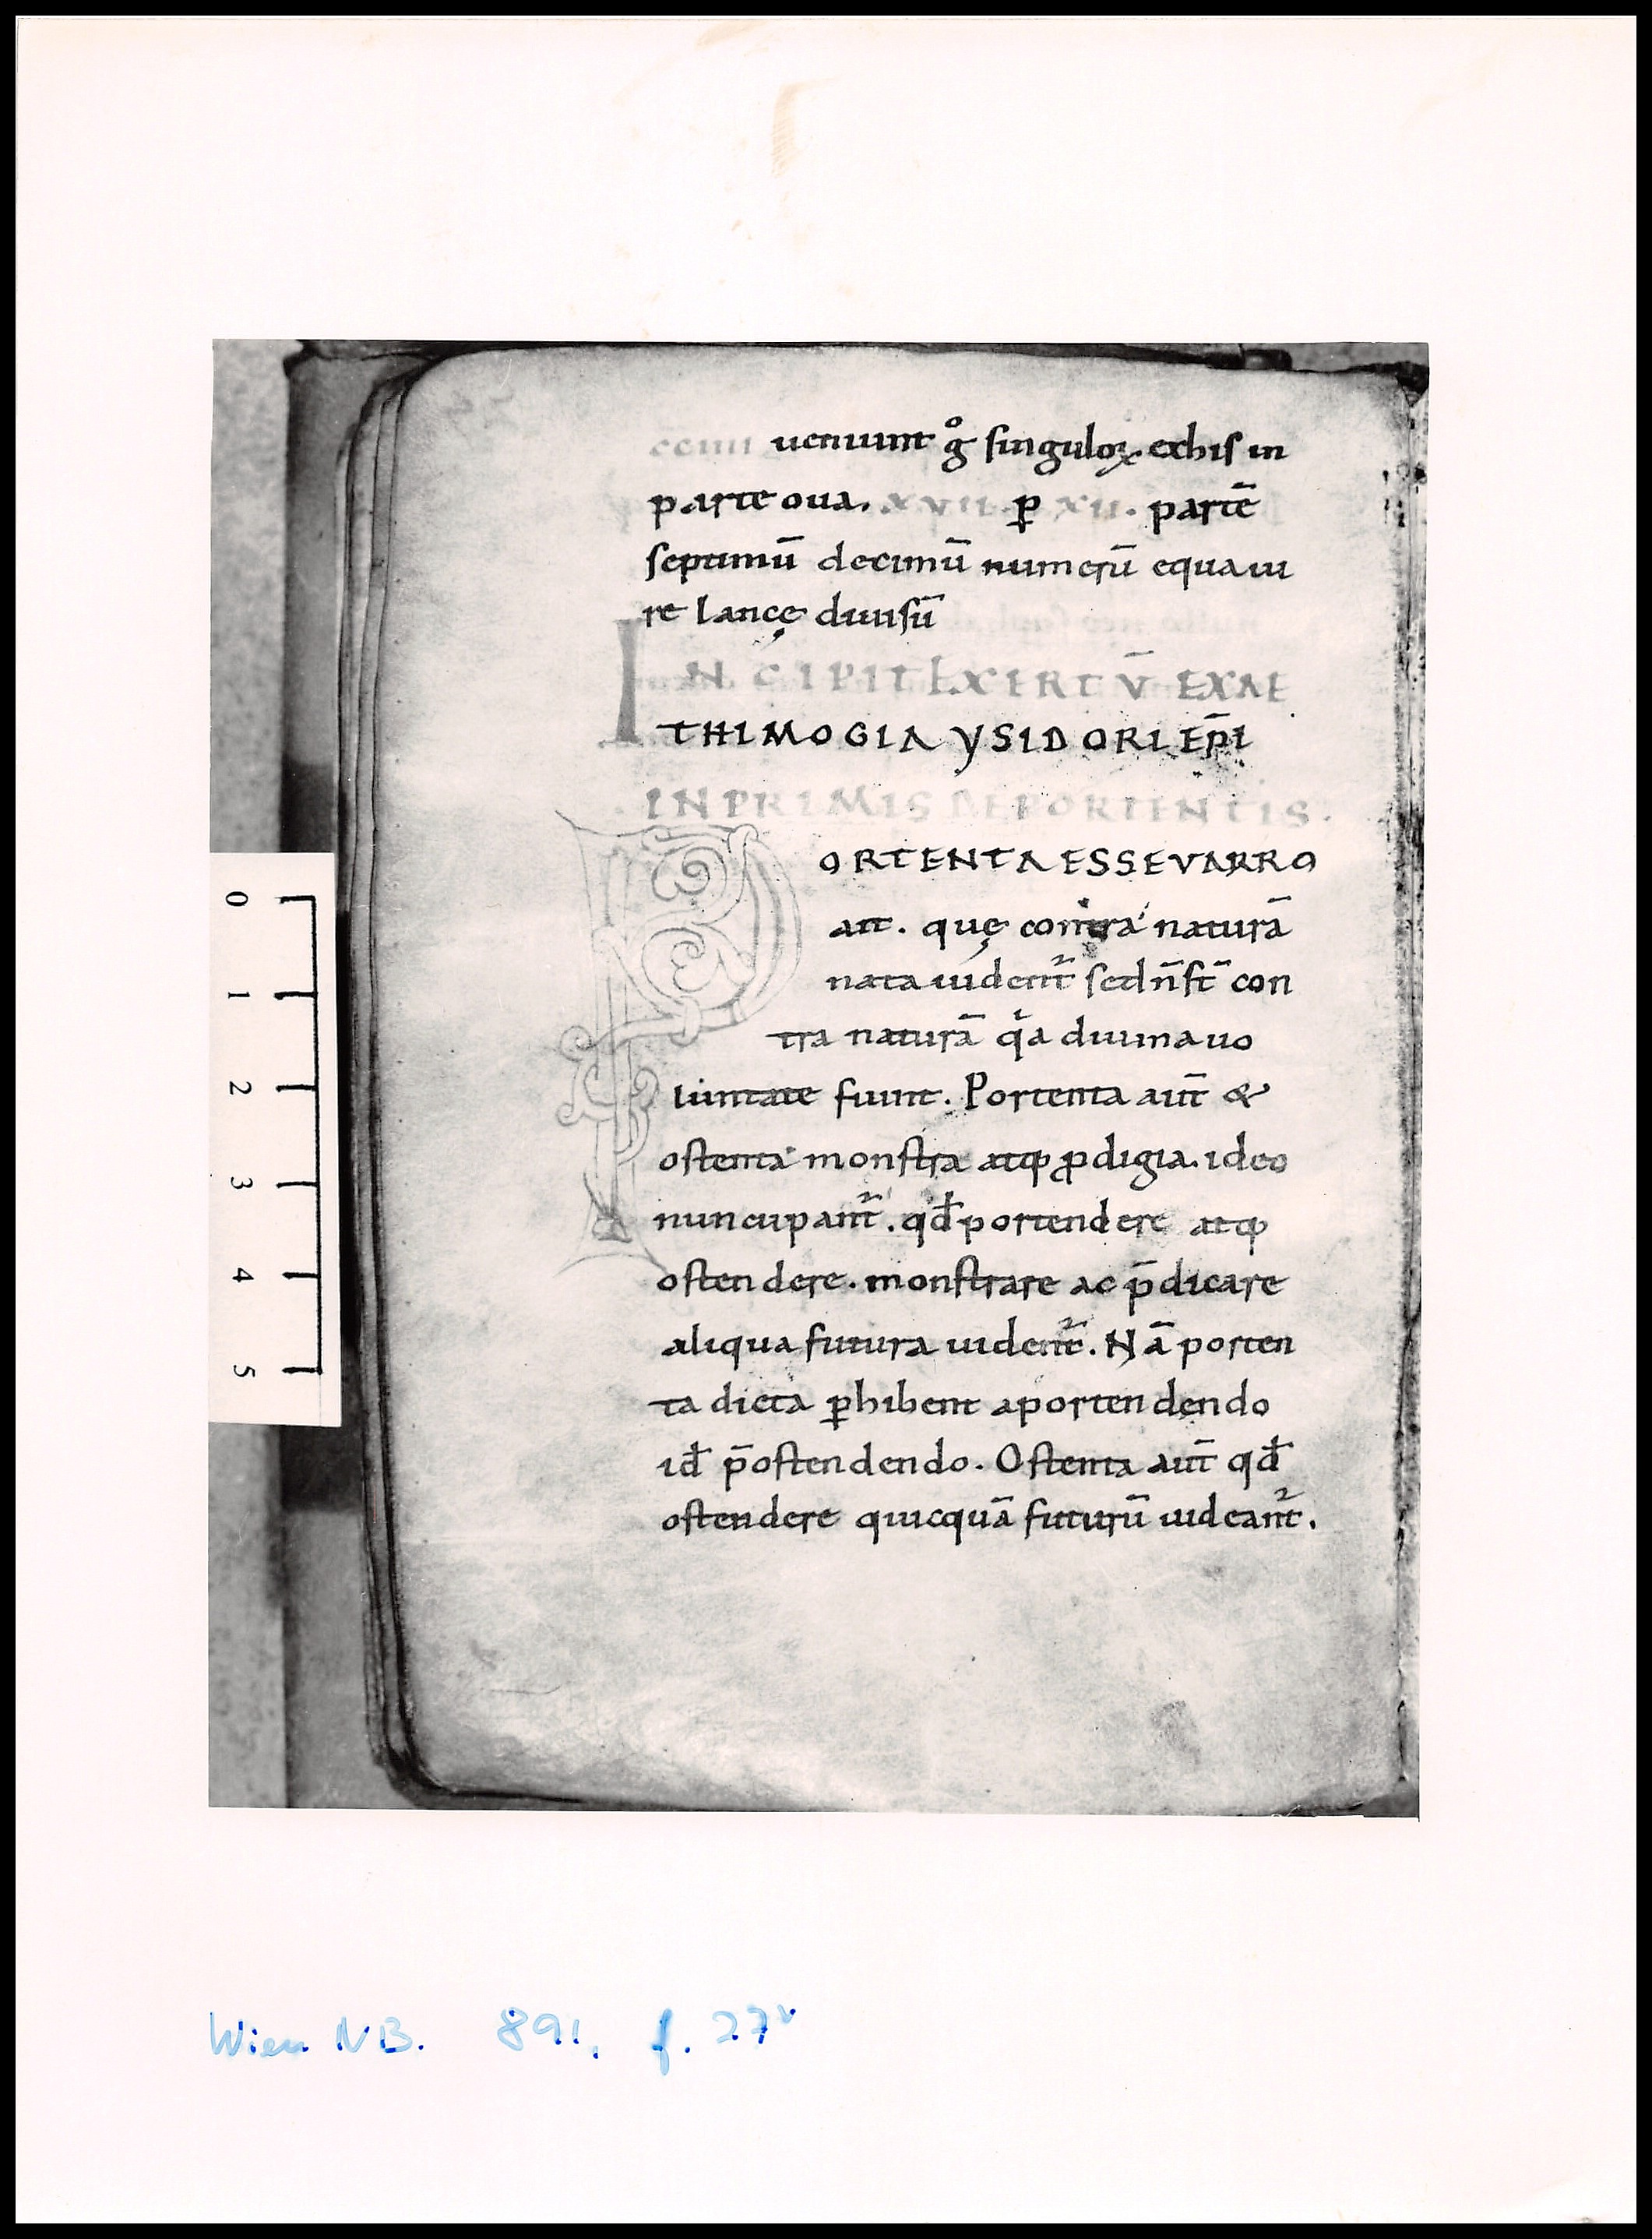 ccıııı ueniunt g̊ singuloꝝ. exhis in
parte oua. xvii. ꝑ xii. partē
septimū decimū numerū equa iu
re lancę diuisū
INCIPIT EXCERTV̄ EXAE
THIMOGIA YSIDORI EP̄I
INPRIMIS DEPORTENTIS.
PORTENTA ESSE VARRO
ait. quę contra naturā
nata uident᷑ sed n̄ st̄ con
tra naturā qͥa diuina uo
luntate fiunt. Portenta aut̄ &
ostenta monstra atqꝫ ꝓdigia. ideo
nuncupant᷑. qđ portendere atqꝫ
ostendere. monstrare ac p̄dicare
aliqua futura uident᷑. Nā porten
ta dicta ꝑhibent aportendendo
id÷ p̄ostendendo. Ostenta aut̄ qđ
ostendere quicquā futurū uideant᷑.
0
1
2
3
4
5
Wien NB. 891, f. 27v